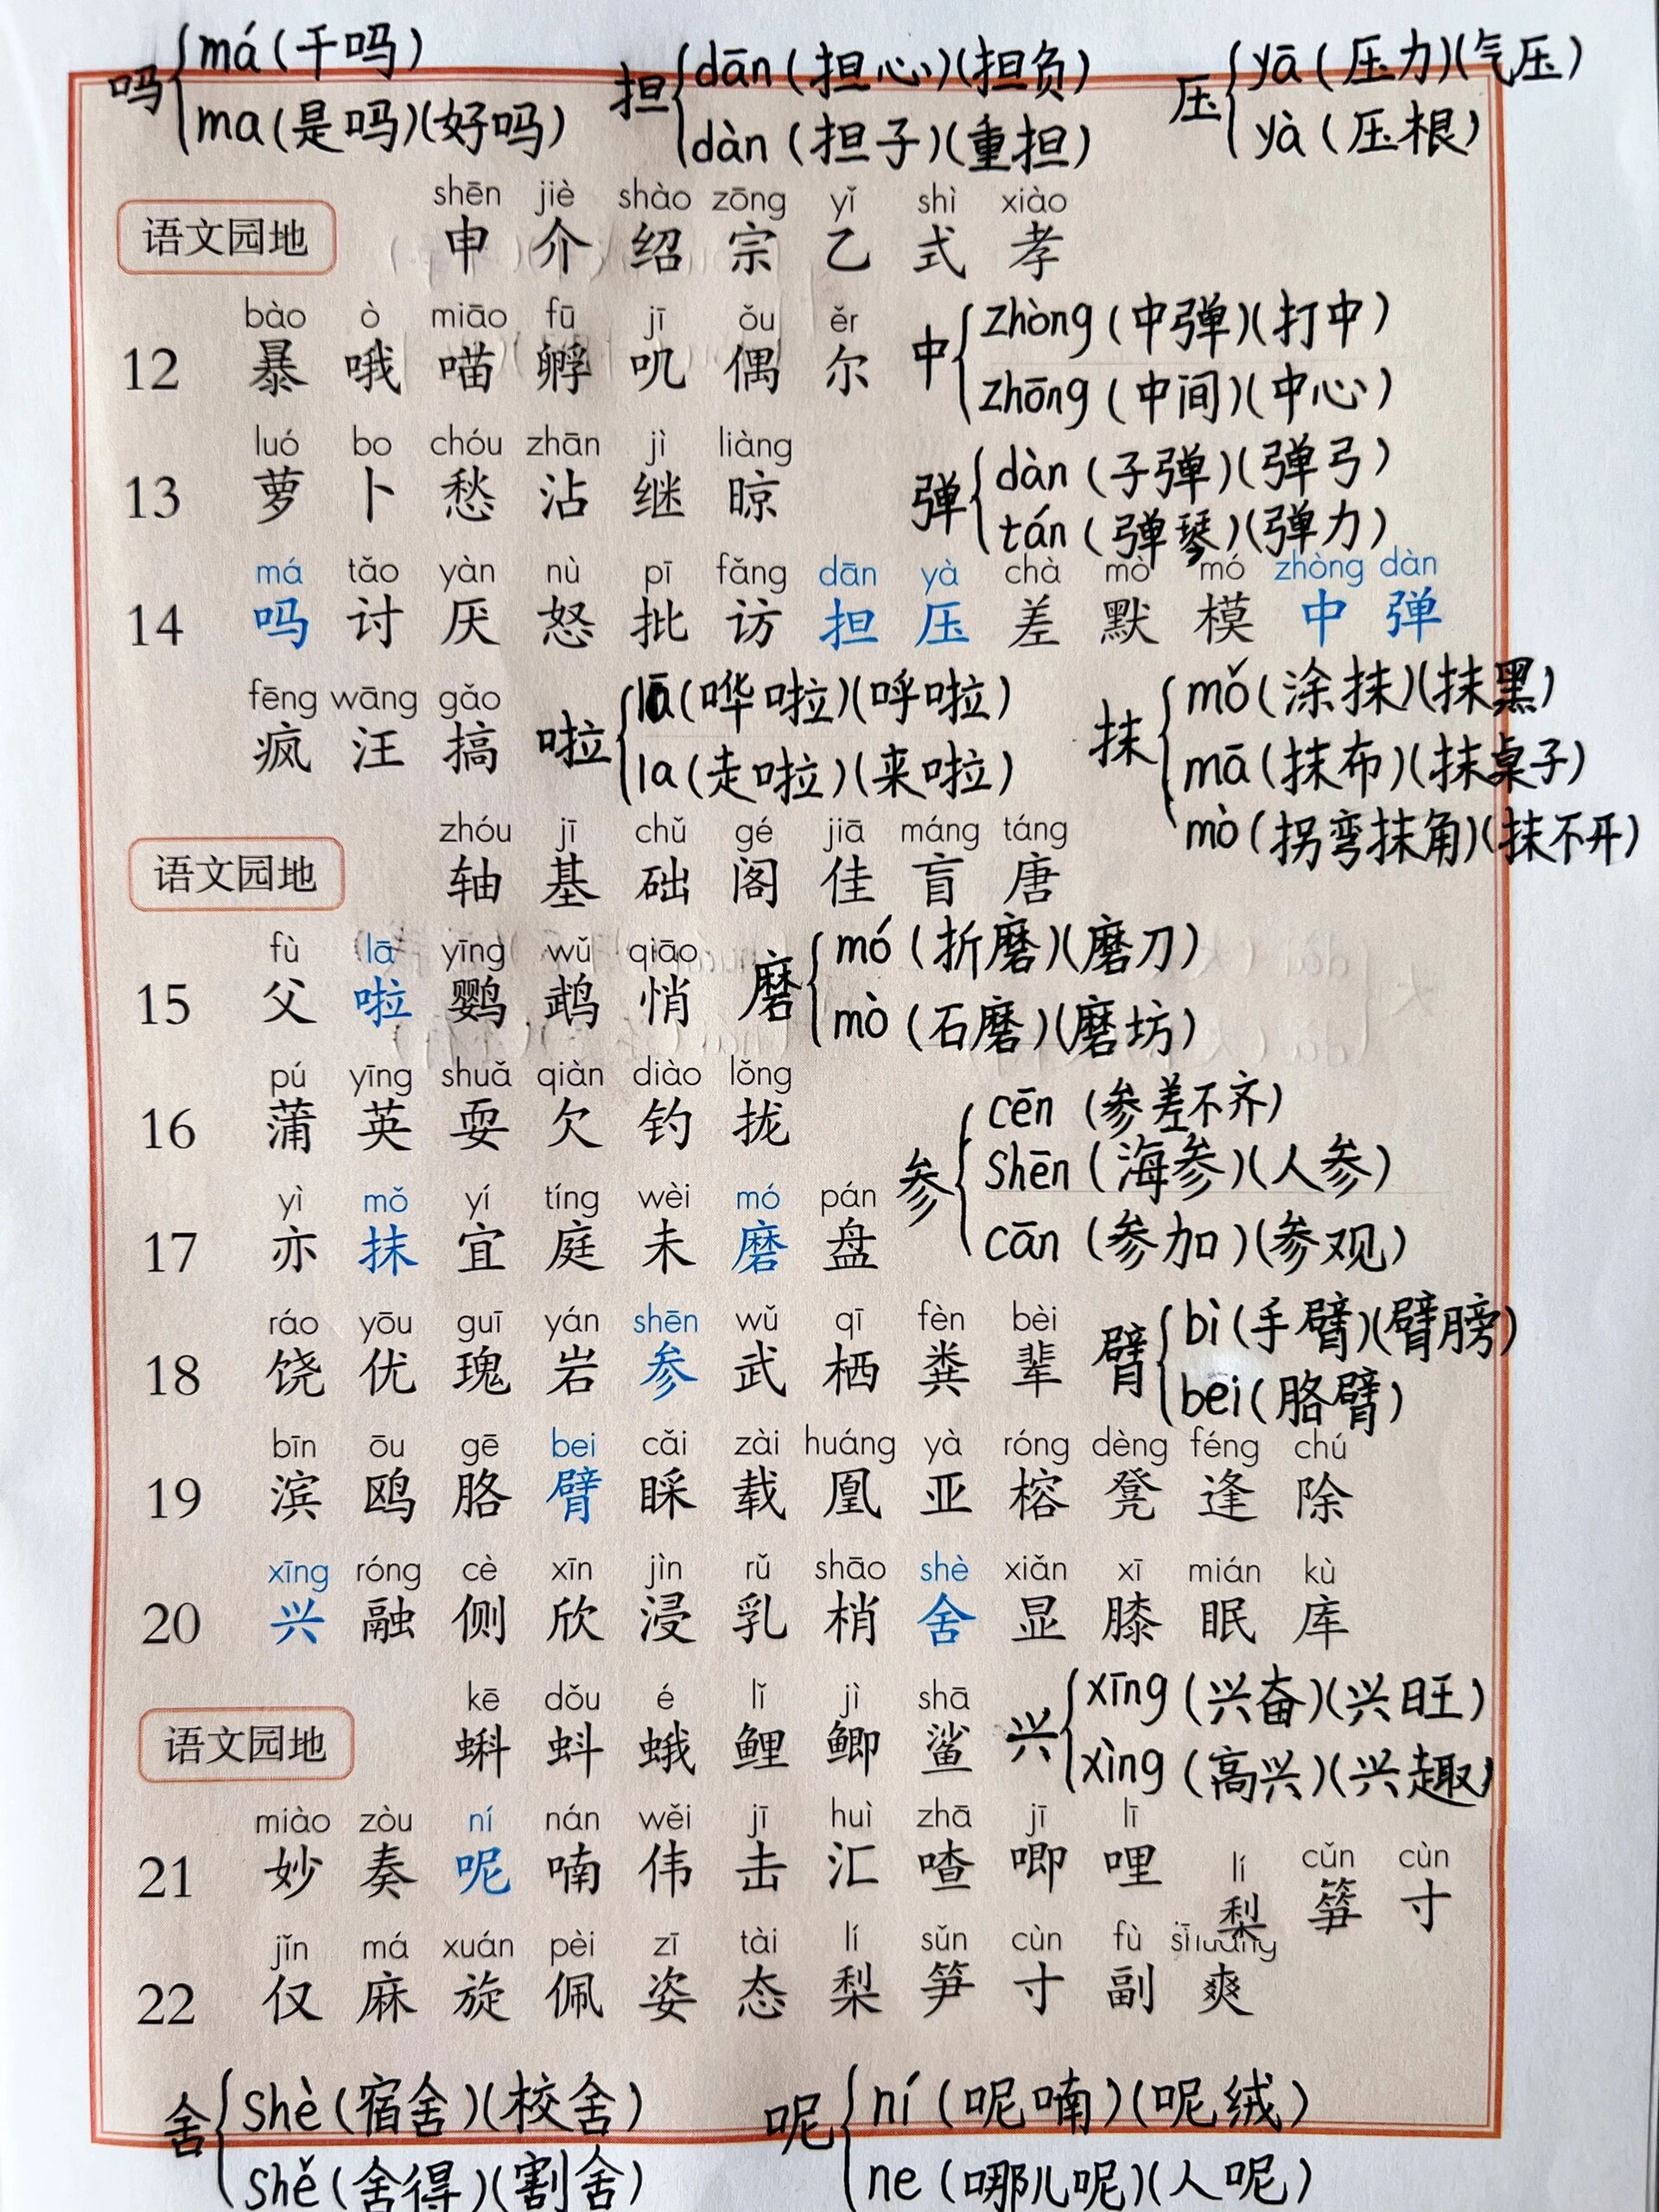 吗 má(干吗)
ma(是吗)(好吗)
担 dān(担心)(担负)
dàn(担子)(重担)
压 yā(压力)(气压)
yà(压根)
shēn jiè shào zōng yǐ shì xiào
语文园地 申 介 绍 宗 乙 式 孝
bào ò miāo fū jī ǒu ěr
12 暴 哦 喵 孵 叽 偶 尔
中 zhòng(中弹)(打中)
zhōng(中间)(中心)
luó bo chóu zhān jì liàng
13 萝 卜 愁 沾 继 晾
弹 dàn(子弹)(弹弓)
tán(弹琴)(弹力)
má tǎo yàn nù pī fǎng dān yà chà mò mó zhòng dàn
14 吗 讨 厌 怒 批 访 担 压 差 默 模 中 弹
fēng wāng gǎo
疯 汪 搞
啦 lā(哗啦)(呼啦)
la(走啦)(来啦)
抹 mǒ(涂抹)(抹黑)
mā(抹布)(抹桌子)
mò(拐弯抹角)(抹不开)
zhóu jī chǔ gé jiā máng táng
语文园地 轴 基 础 阁 佳 盲 唐
fù lā yīng wǔ qiāo
15 父 啦 鹦 鹉 悄
磨 mó(折磨)(磨刀)
mò(石磨)(磨坊)
pú yīng shuǎ qiàn diào lǒng
16 蒲 英 耍 欠 钓 拢
参 cēn(参差不齐)
shēn(海参)(人参)
cān(参加)(参观)
yì mǒ yí tíng wèi mó pán
17 亦 抹 宜 庭 未 磨 盘
ráo yōu guī yán shēn wǔ qī fèn bèi
18 饶 优 瑰 岩 参 武 栖 粪 辈
臂 bì(手臂)(臂膀)
bei(胳臂)
bīn ōu gē bei cǎi zài huáng yà róng dèng féng chú
19 滨 鸥 胳 臂 睬 载 凰 亚 榕 凳 逢 除
xīng róng cè xīn jìn rǔ shāo shè xiǎn xī mián kù
20 兴 融 侧 欣 浸 乳 梢 舍 显 膝 眠 库
kē dǒu é lǐ jì shā
语文园地 蝌 蚪 蛾 鲤 鲫 鲨
兴 xīng(兴奋)(兴旺)
xìng(高兴)(兴趣)
miào zòu ní nán wěi jī huì zhā jī lī
21 妙 奏 呢 喃 伟 击 汇 喳 唧 哩
lí cǔn cùn
梨 寸
jǐn má xuán pèi zī tài lí sǔn cùn fù
22 仅 麻 旋 佩 姿 态 梨 笋 寸 副 爽
舍 shè(宿舍)(校舍)
shě(舍得)(割舍)
呢 ní(呢喃)(呢绒)
ne(哪儿呢)(人呢)